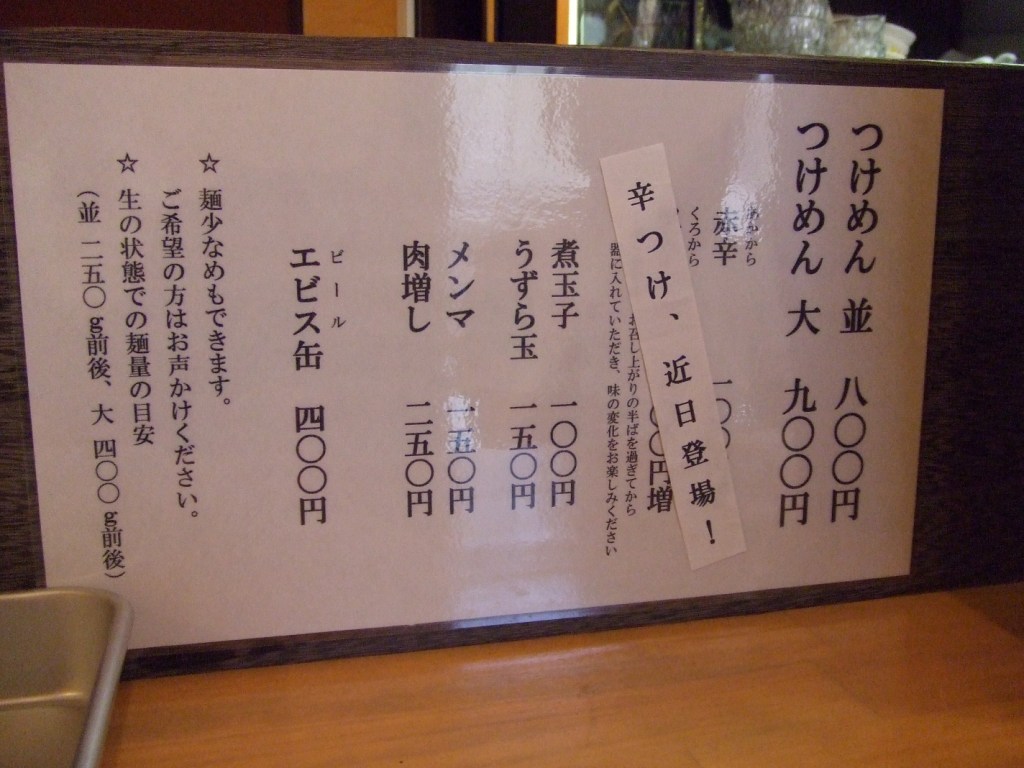 つけめん 並 八〇〇円
つけめん 大 九〇〇円
あかから
赤辛 一〇〇
くろから
〇〇円増
辛つけ、近日登場！
お召し上がりの半ばを過ぎてから
器に入れていただき、味の変化をお楽しみください
煮玉子 一〇〇円
うずら玉 一五〇円
メンマ 一五〇円
肉増し 二五〇円
ビール
エビス缶 四〇〇円
☆ 麺少なめもできます。
ご希望の方はお声かけください。
☆ 生の状態での麺量の目安
（並 二五〇g前後、大 四〇〇g前後）